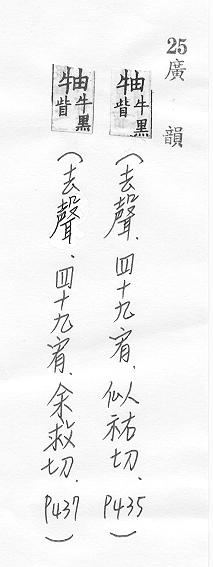 25廣韻
牰牛黑眥(去聲、四十九宥、似祐切、P435)
牰牛黑眥(去聲、四十九宥、余救切、P437)